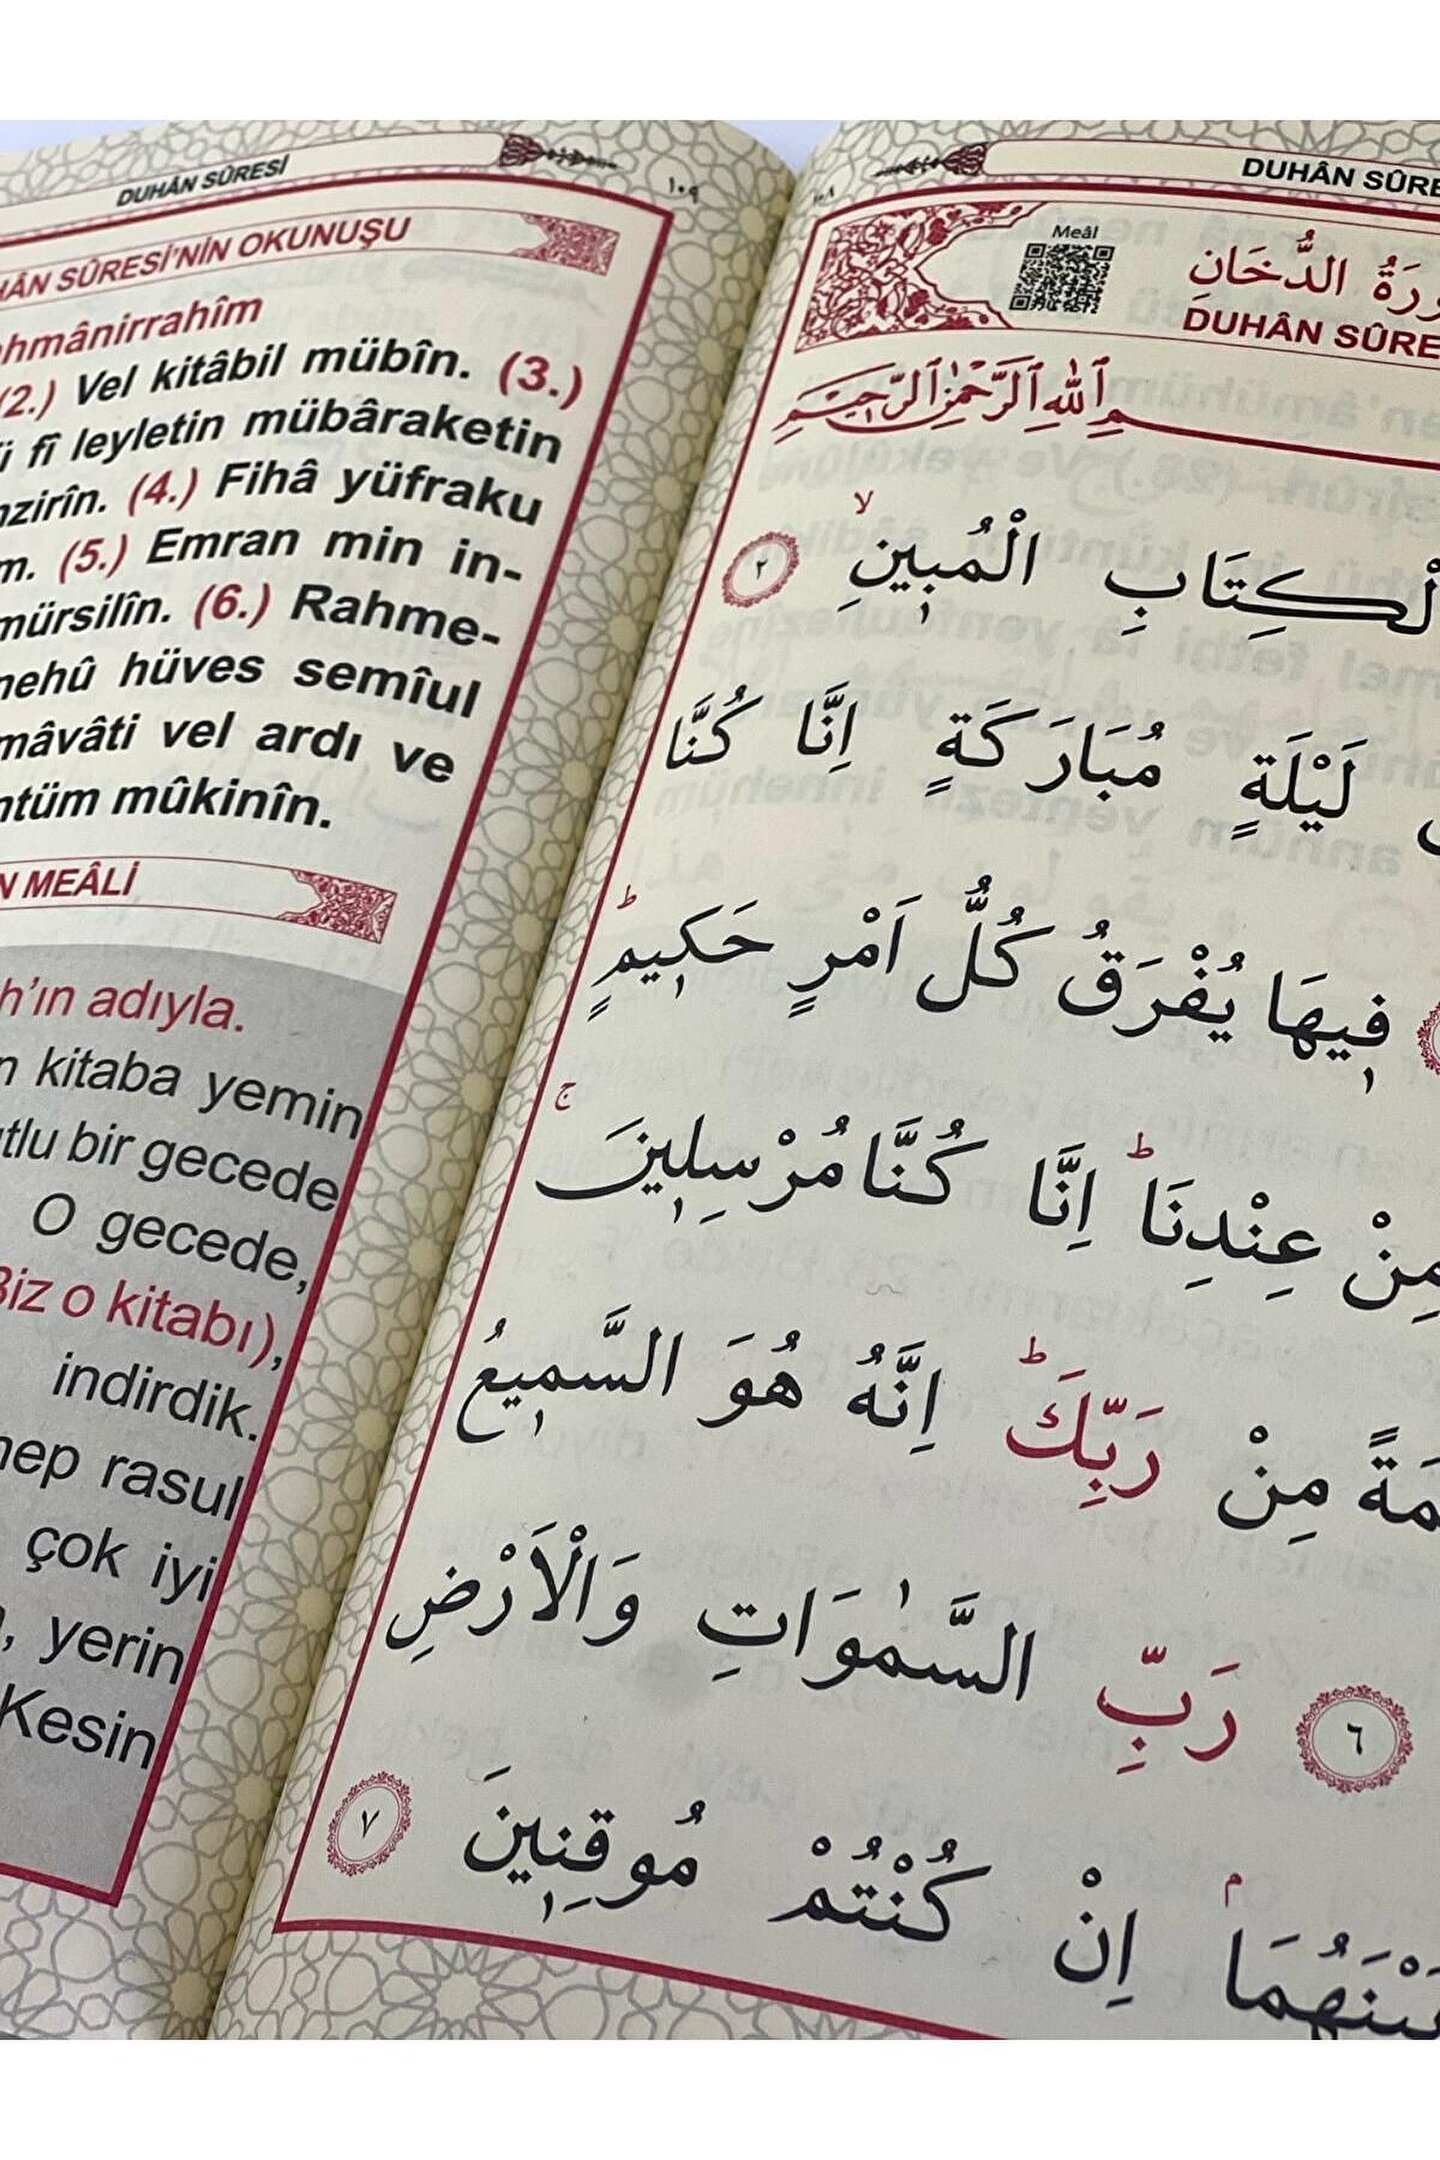 DUHÂN SÛRESİ
١٠٩
SÛRESİ'NİN OKUNUŞU
(2.) Vel kitâbil mübîn. (3.)
fî leyletin mübâraketin
(4.) Fihâ yüfraku
(5.) Emran min in-
mürsilîn. (6.) Rahme-
hüves semîul
vel ardı ve
mûkinîn.
MEÂLİ
adıyla.
kitaba yemin
bir gecede
O gecede,
o kitabı),
indirdik.
rasul
çok iyi
yerin
Kesin
١٠٨
DUHÂN
Meâl
الدُّخَانِ
DUHÂN
اللهِ الرَّحْمٰنِ الرَّحِيمِ
الْمُبِينِ ۙ ٢
لَيْلَةٍ مُبَارَكَةٍ اِنَّا كُنَّا
فِيهَا يُفْرَقُ كُلُّ اَمْرٍ حَكِيمٍ ۜ
مِنْ عِنْدِنَا ۜ اِنَّا كُنَّا مُرْسِلِينَ ۚ
مِنْ رَبِّكَ ۜ اِنَّهُ هُوَ السَّمِيعُ
٦ رَبِّ السَّمٰوَاتِ وَالْاَرْضِ
اِنْ كُنْتُمْ مُوقِنِينَ ٧